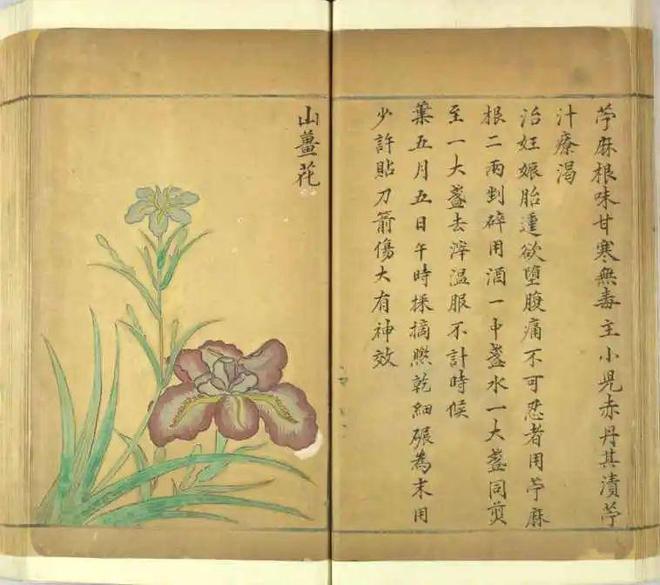 苧麻根味甘寒無毒主小児赤丹其漬苧
汁療渴
治妊娠胎運欲墮腹痛不可忍者用苧麻
根二兩剉碎用酒一中盞水一大盞同煎
至一大盞去滓温服不計時候
葉五月五日午時採摘㬠乾細碾為末用
少許貼刀箭傷大有神效
山薑花